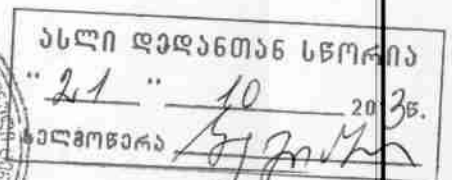 ასლი დედანთან სწორია
" 21 " 10 20 3წ.
ხელმოწერა